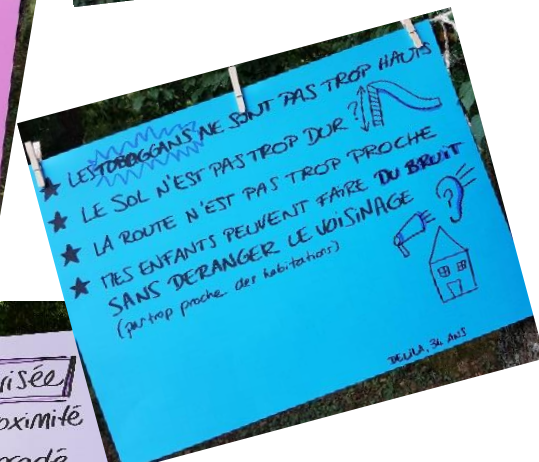 ★ LES TOBOGGANS NE SONT PAS TROP HAUTS
?
★ LE SOL N'EST PAS TROP DUR
★ LA ROUTE N'EST PAS TROP PROCHE
★ MES ENFANTS PEUVENT FAIRE DU BRUIT
SANS DERANGER LE VOISINAGE
(pas trop proche des habitations)
?
DELILA, 34 ANS
risée
oximité